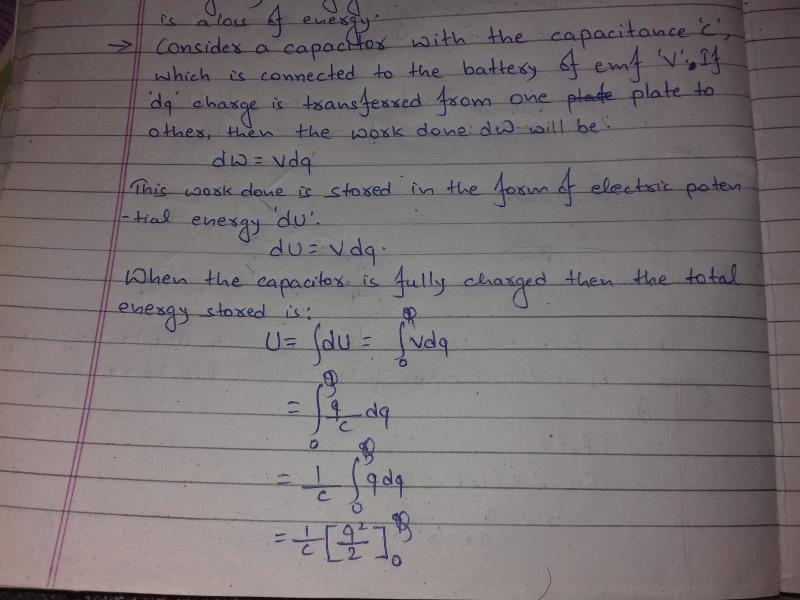 is a loss of energy.
→ Consider a capacitor with the capacitance 'c',
which is connected to the battery of emf 'V'. If
'dq' charge is transferred from one plate plate to
other, then the work done dW will be:
dW = Vdq
This work done is stored in the form of electric poten
-tial energy 'dU'.
dU = Vdq.
When the capacitor is fully charged then the total
energy stored is:
U = ∫dU = ∫₀^Q Vdq
= ∫₀^Q q/c dq
= 1/c ∫₀^Q q dq
= 1/c [q²/2]₀^Q